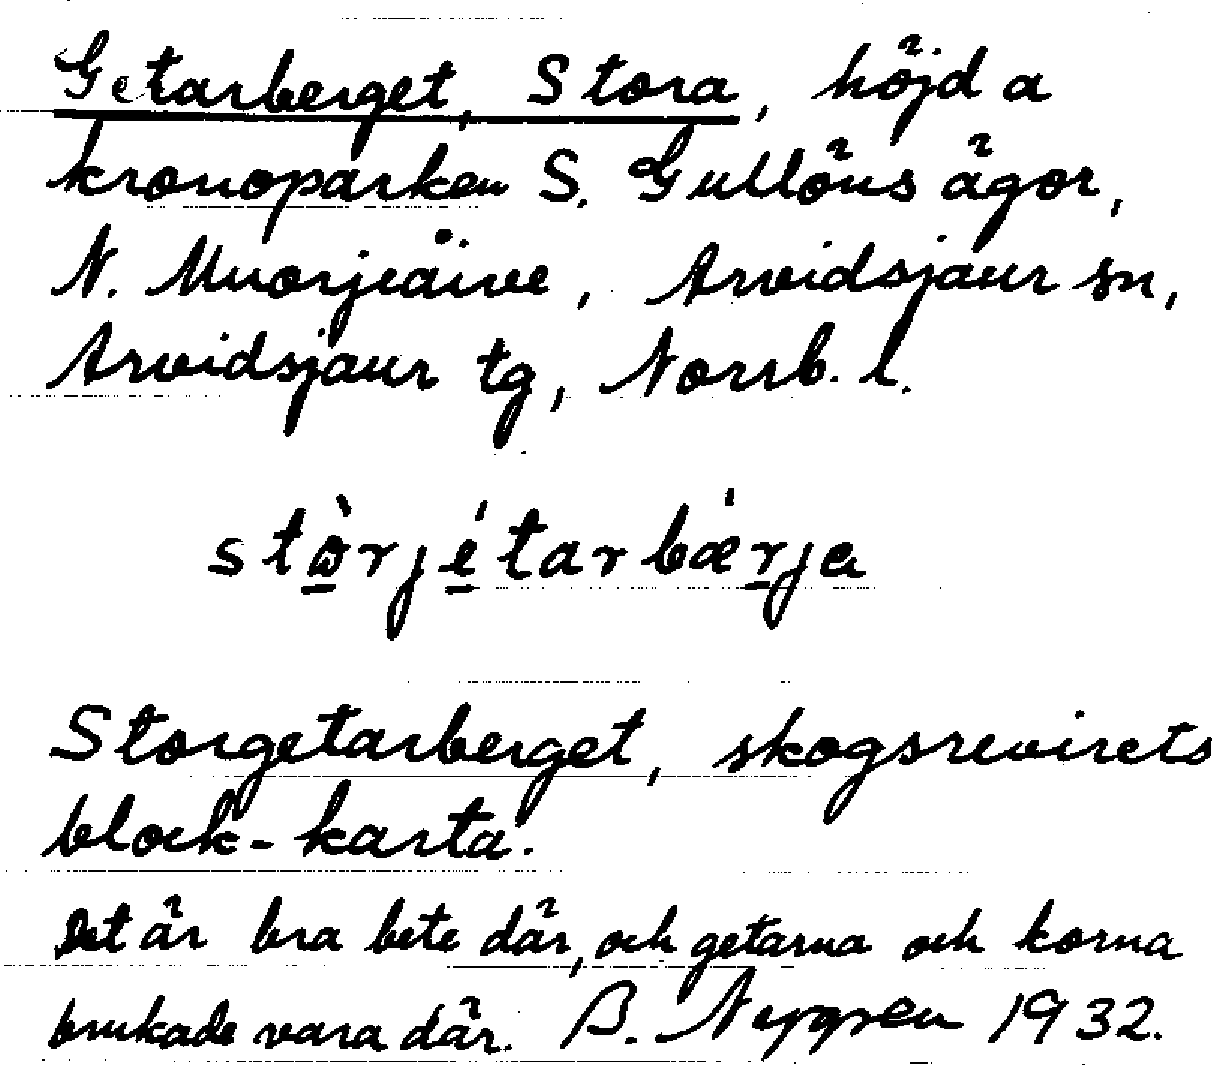 Getarberget, Stora, höjd a
kronoparken S. Gullöns ägor,
N. Muorjeäive, Arvidsjaur sn,
Arvidsjaur tg, Norrb. l.
stò̱rjé̱tarbǽṟja
Storgetarberget, skogsrevirets
block-karta.
Det är bra bete där, och getarna och korna
brukade vara där. B. Nygren 1932.